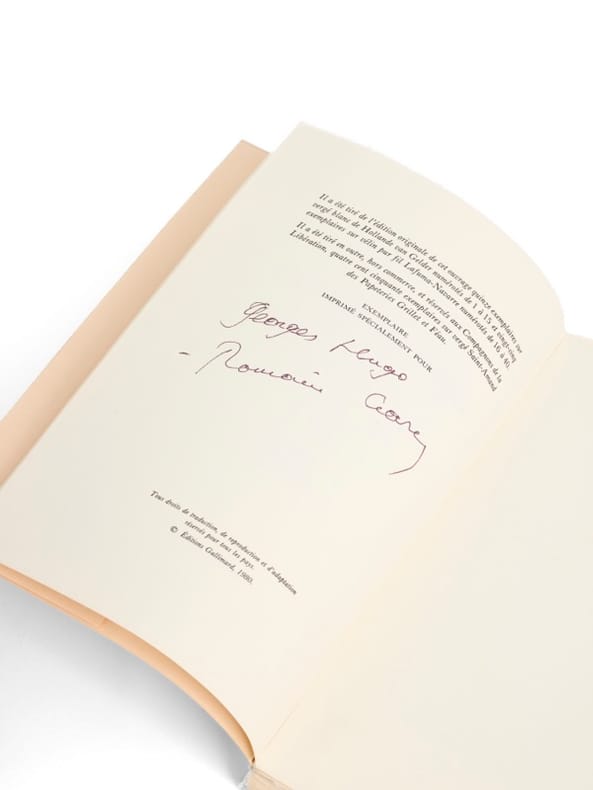 Il a été tiré de l'édition originale de cet ouvrage quinze exemplaires sur
vergé blanc de Hollande van Gelder numérotés de 1 à 15 et vingt-cinq
exemplaires sur vélin pur fil Lafuma-Navarre numérotés de 16 à 40.
Il a été tiré en outre, hors commerce, et réservés aux Compagnons de la
Libération, quatre cent cinquante exemplaires sur vergé Saint-Amand
des Papeteries Grillet et Féau.
EXEMPLAIRE
IMPRIMÉ SPÉCIALEMENT POUR
Georges Hugo
- Romain Gary
Tous droits de traduction, de reproduction et d'adaptation
réservés pour tous les pays.
© Éditions Gallimard, 1980.